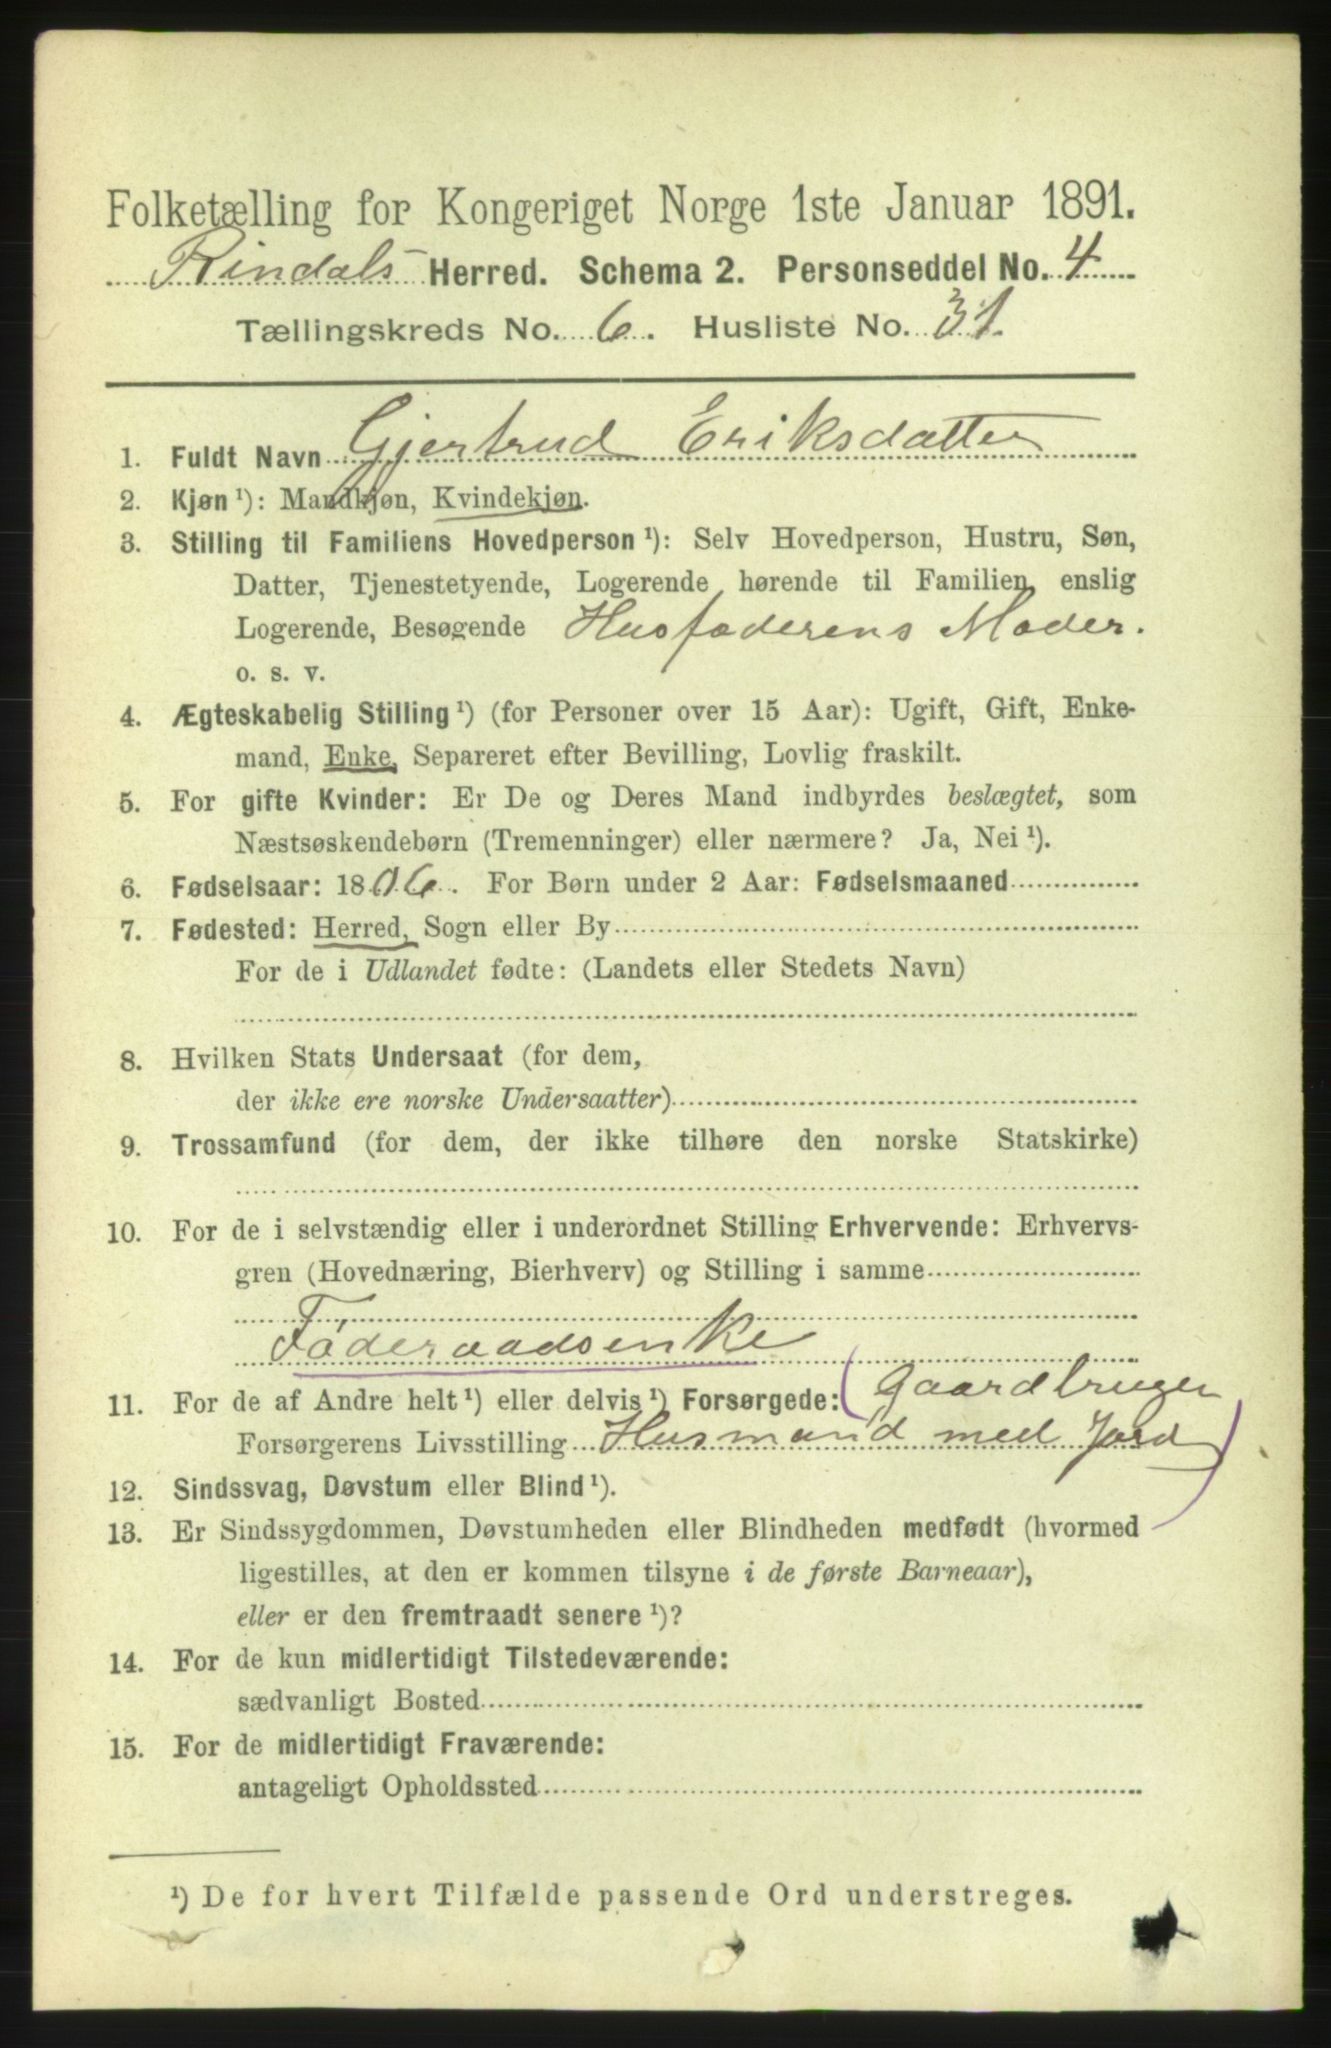 Folketælling for Kongeriget Norge 1ste Januar 1891.
Rindals Herred. Schema 2. Personseddel No. 4
Tællingskreds No. 6. Husliste No. 31.
1. Fuldt Navn Gjertrud Eriksdatter
2. Kjøn ¹): Mandkjøn, Kvindekjøn.
3. Stilling til Familiens Hovedperson ¹): Selv Hovedperson, Hustru, Søn,
Datter, Tjenestetyende, Logerende hørende til Familien, enslig
Logerende, Besøgende Husfaderens Moder.
o. s. v.
4. Ægteskabelig Stilling ¹) (for Personer over 15 Aar): Ugift, Gift, Enke-
mand, Enke, Separeret efter Bevilling, Lovlig fraskilt.
5. For gifte Kvinder: Er De og Deres Mand indbyrdes beslægtet, som
Næstsøskendebørn (Tremenninger) eller nærmere? Ja, Nei ¹).
6. Fødselsaar: 1806. For Børn under 2 Aar: Fødselsmaaned
7. Fødested: Herred, Sogn eller By
For de i Udlandet fødte: (Landets eller Stedets Navn)
8. Hvilken Stats Undersaat (for dem,
der ikke ere norske Undersaatter)
9. Trossamfund (for dem, der ikke tilhøre den norske Statskirke)
10. For de i selvstændig eller i underordnet Stilling Erhvervende: Erhvervs-
gren (Hovednæring, Bierhverv) og Stilling i samme
Føderaadsenke
11. For de af Andre helt ¹) eller delvis ¹) Forsørgede: (Gaardbruger
Forsørgerens Livsstilling Husmand med Jord)
12. Sindssvag, Døvstum eller Blind ¹).
13. Er Sindssygdommen, Døvstumheden eller Blindheden medfødt (hvormed
ligestilles, at den er kommen tilsyne i de første Barneaar),
eller er den fremtraadt senere ¹)?
14. For de kun midlertidigt Tilstedeværende:
sædvanligt Bosted
15. For de midlertidigt Fraværende:
antageligt Opholdssted
¹) De for hvert Tilfælde passende Ord understreges.